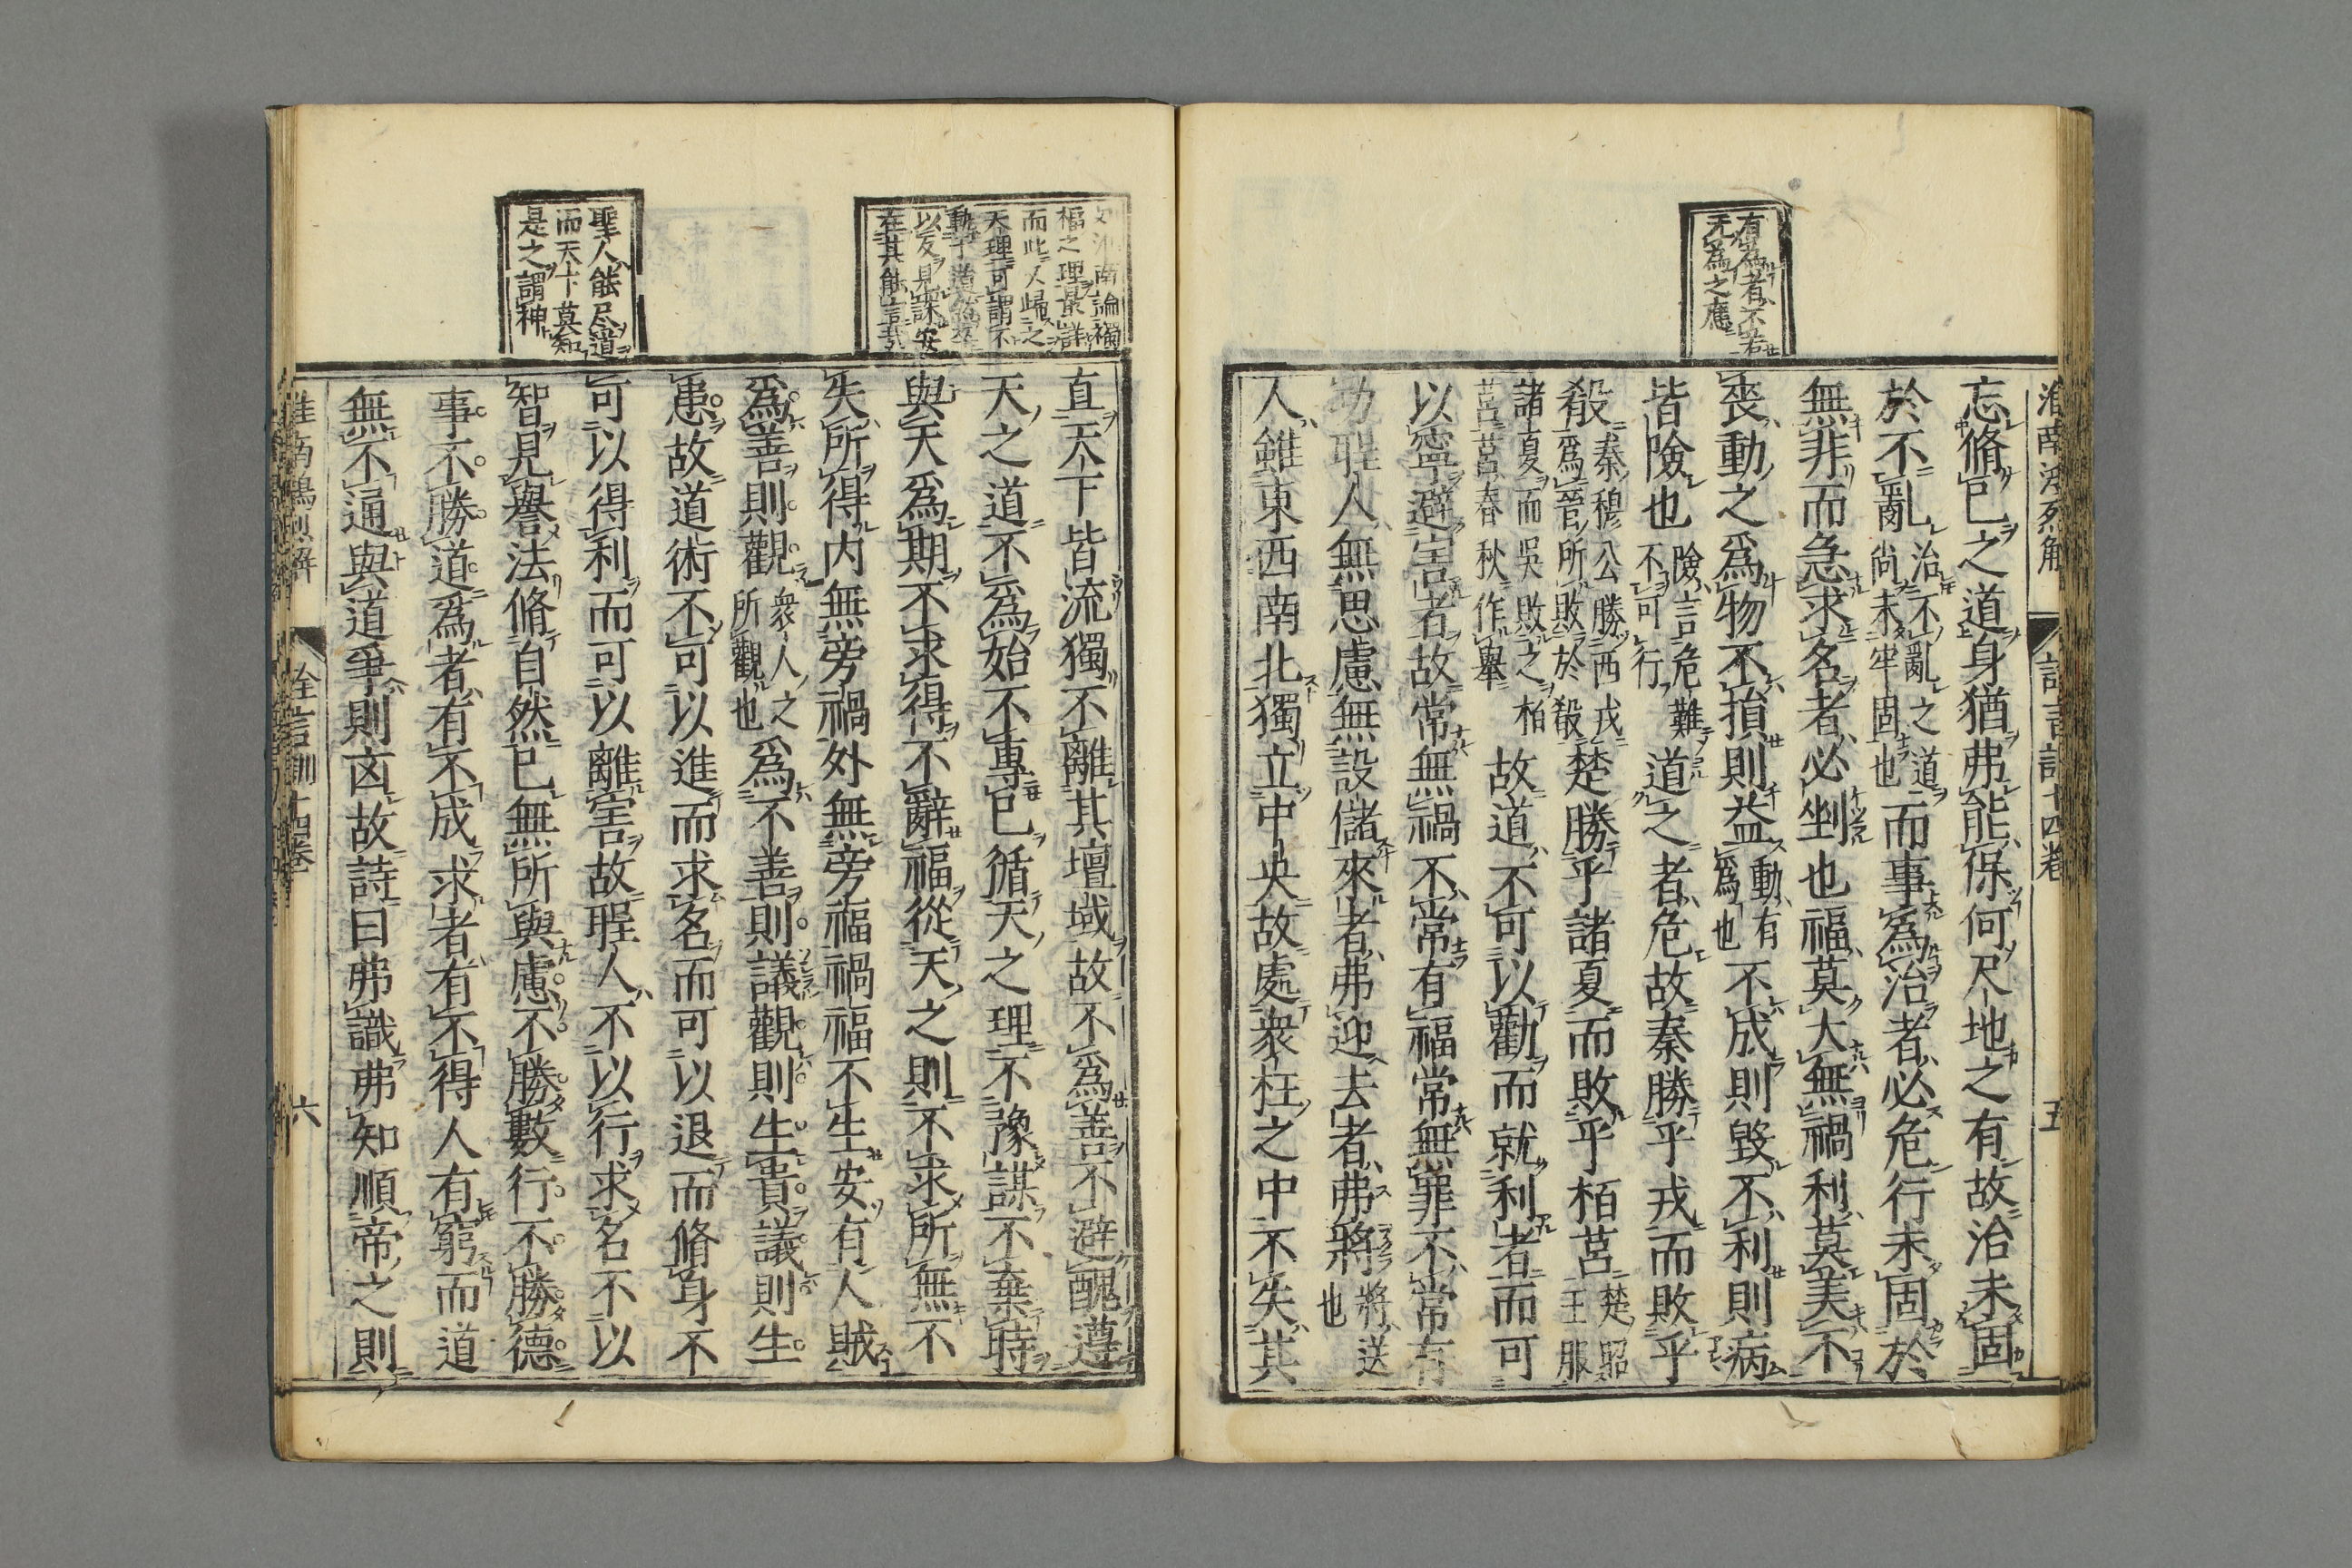 淮南鴻烈解 詮言訓十四卷 五
有爲者不若
无爲之應
忘脩己之道身猶弗能保何尺地之有故治未固
於不亂治不亂之道尚未牢固也而事爲治者必危行未固於
無非而急求名者必剉也福莫大無禍利莫美不
喪動之爲物不損則益動有爲也不成則毀不利則病
皆險也險言危難不可行道之者危故秦勝乎戎而敗乎
殽秦穆公勝西戎爲晉所敗於殽楚勝乎諸夏而敗乎栢莒楚昭王服
諸夏而吳敗之柏莒莒春秋作舉故道不可以勸而就利者而可
以寧避害者故常無禍不常有福常無罪不常有
功聖人無思慮無設儲來者弗迎去者弗將將送也
人雖東西南北獨立中央故處衆枉之中不失其
淮南論禍
福之理最詳
而此乂歸之
天理可謂不
以反見謀安
在其能言哉
聖人能尽道
而天下莫知
是之謂神
直天下皆流獨不離其壇域故不爲善不避醜遵
天之道不爲始不專己循天之理不豫謀不棄時
與天爲期不求得不辭福從天之則不求所無不
失所得内無旁禍外無旁福禍福不生安有人賊
爲善則觀衆人之所觀也爲不善則議觀則生貴議則生
患故道術不可以進而求名而可以退而脩身不
可以得利而可以離害故聖人不以行求名不以
智見譽法脩自然已無所與慮不勝數行不勝德
事不勝道爲者有不成求者有不得人有窮而道
無不通與道爭則凶故詩曰弗識弗知順帝之則
淮南鴻烈解 詮言訓十四卷 六